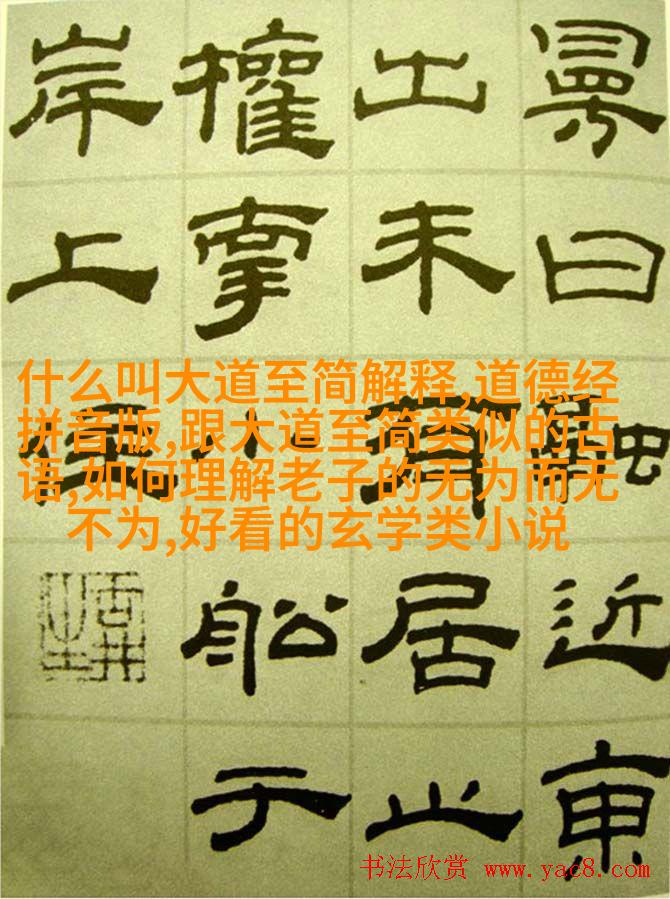 曰融近東
出未有居止
權牽小船于
岸上住
什么叫大道至简解释,道德经
拼音版,跟大道至简类似的古
语,如何理解老子的无为而无
不为,好看的玄学类小说
书法欣赏 www.yac8.com